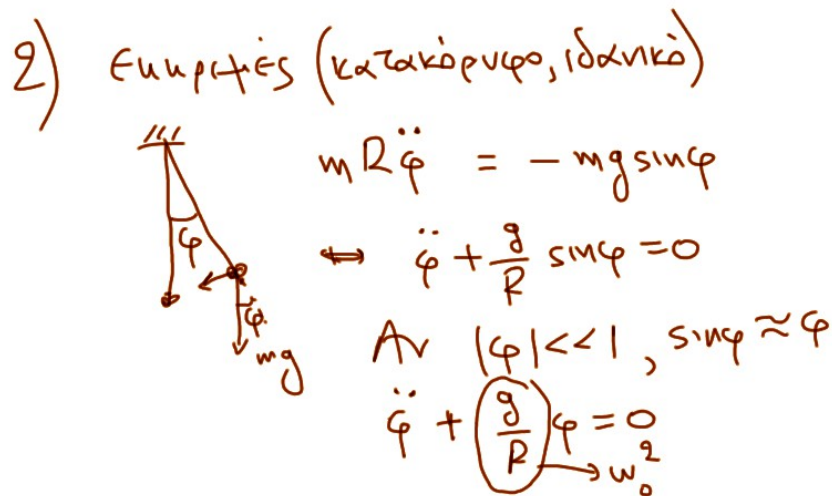 2) Εκκρεμές (κατακόρυφο, ιδανικό)
mRφ̈ = - mg sinφ
φ
⇔ φ̈ + g/R sinφ = 0
φ
mg
Αν |φ|<<1, sinφ ≈ φ
φ̈ + (g/R) φ = 0
→ ω₀²